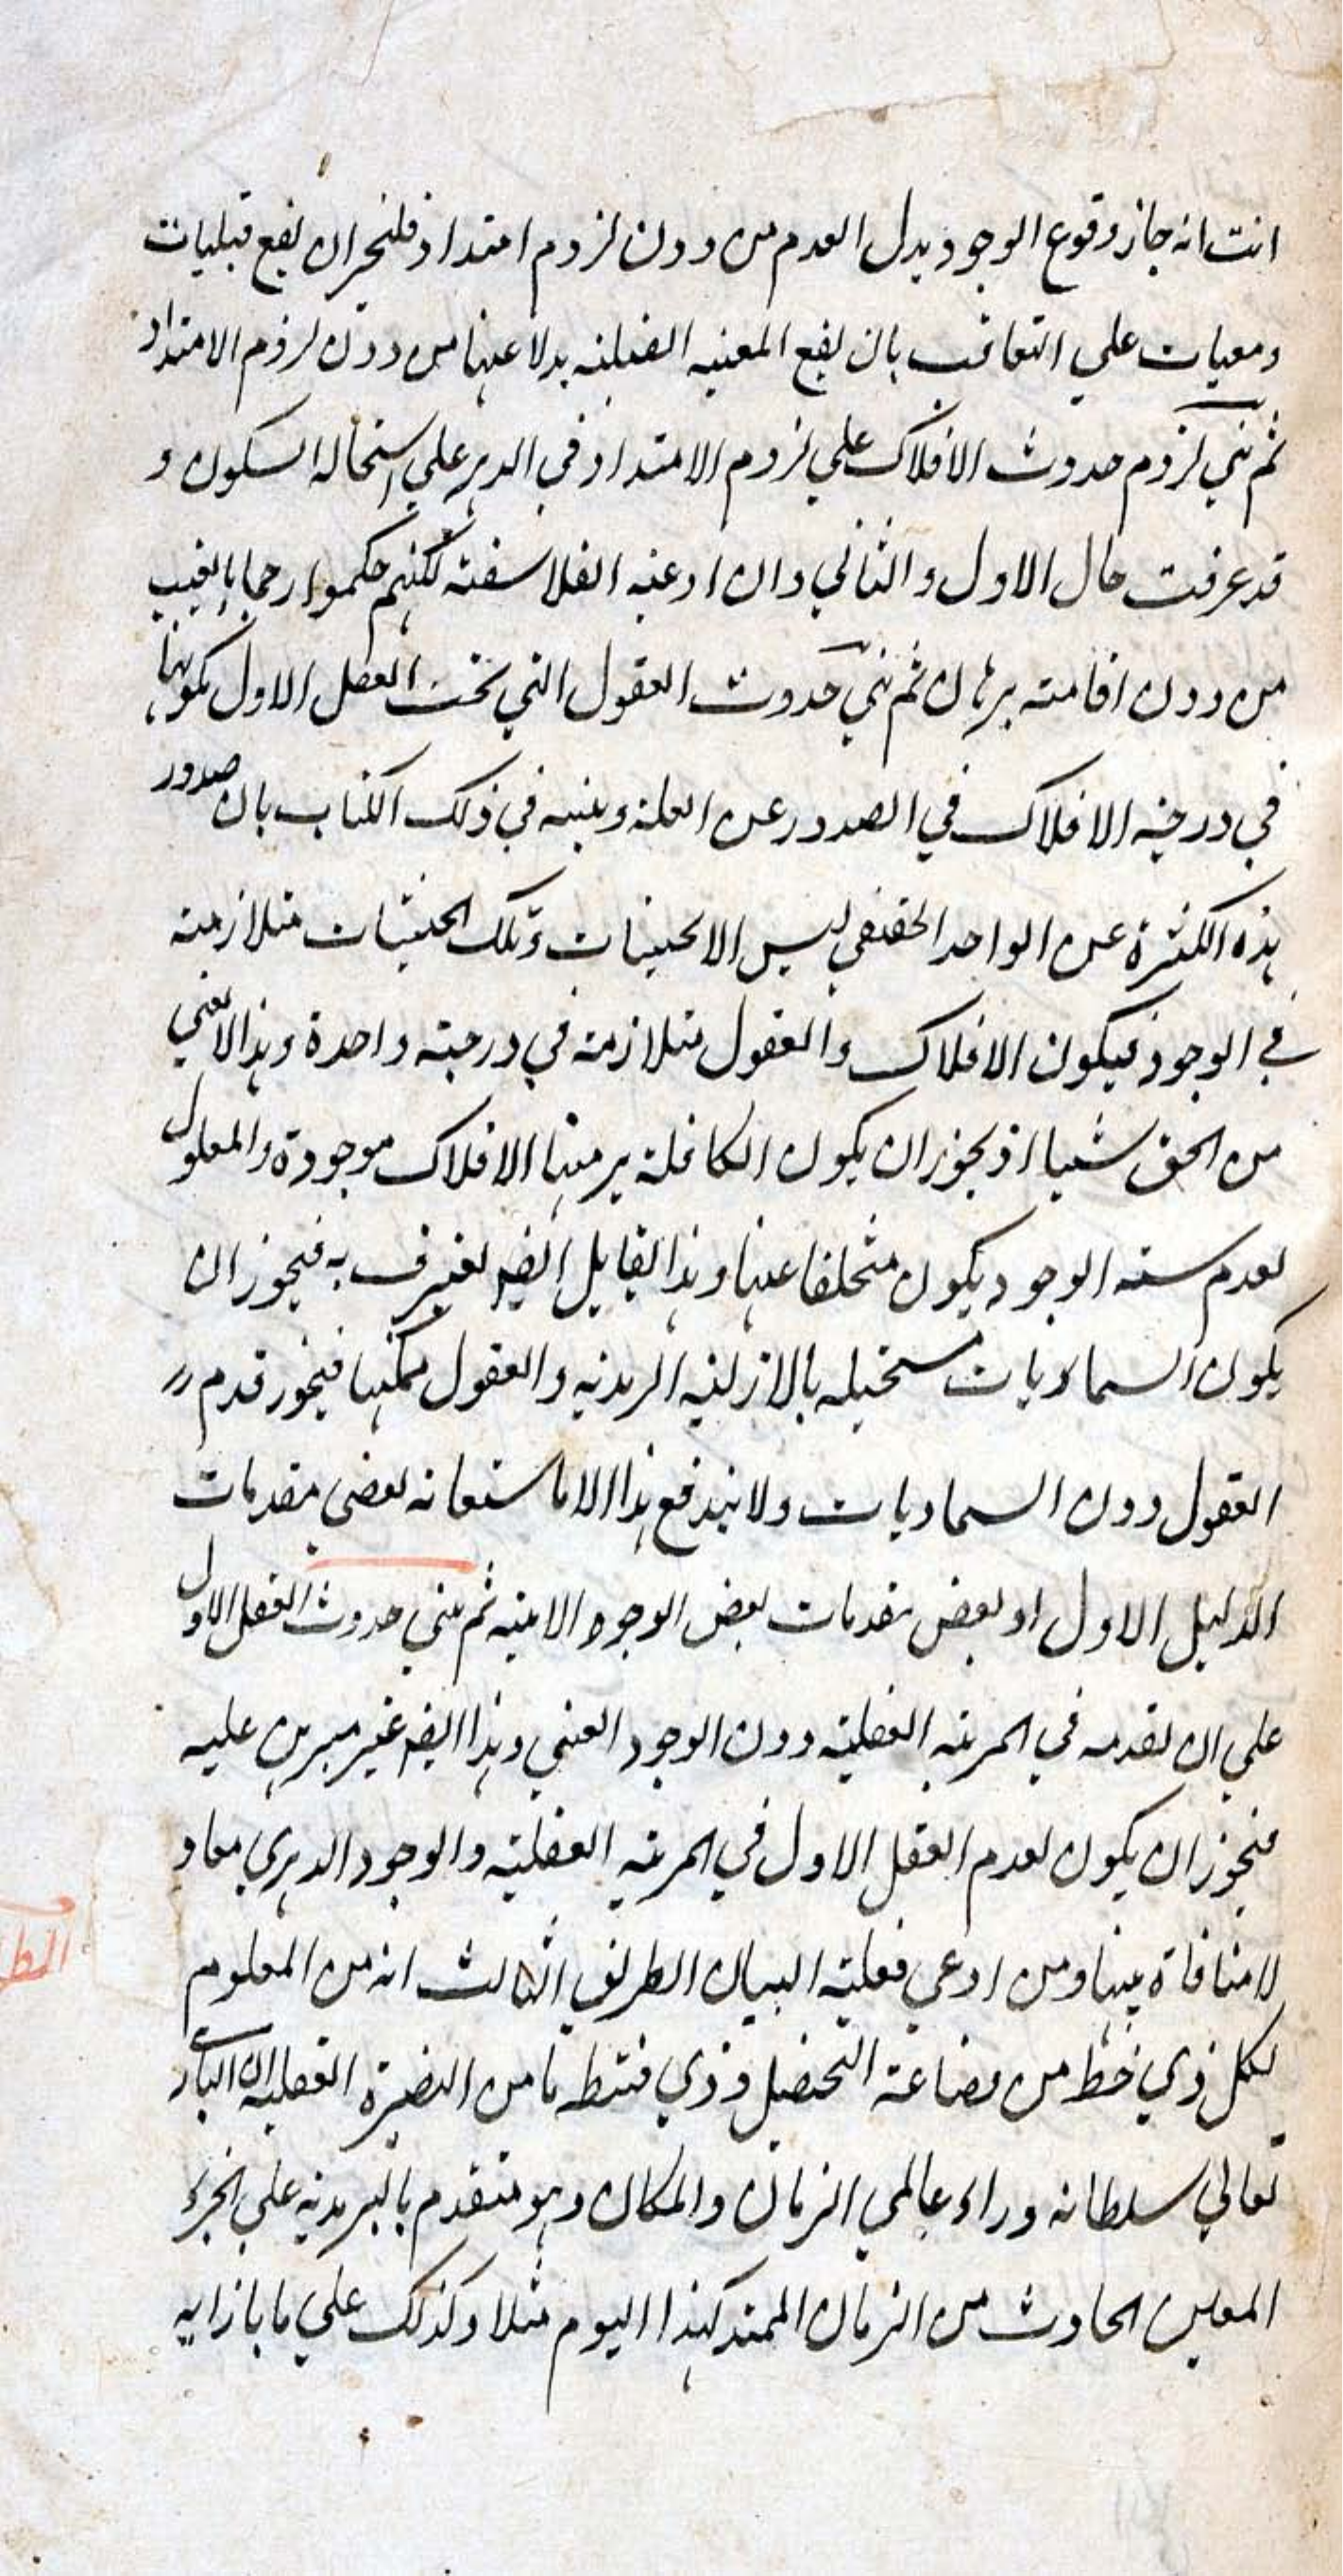 انت انه جاز وقوع الوجود بدل العدم من دون لزوم امتداد فليجز ان يقع قبليات
ومعيات علي التعاقب بان يقع المعيه القبليه بدلا عنها من دون لزوم الامتداد
ثم بني لزوم حدوث الافلاك علي لزوم الامتداد في الدهر علي استحالة السكون و
قد عرفت حال الاول والثاني وان ادعته الفلاسفة لكنهم حكموا رجما بالغيب
من دون اقامته برهان ثم بني حدوث العقول التي تحت العقل الاول بكونها
في درجة الافلاك في الصدور عن العلة وبينه في ذلك الكتاب بان صدور
هذه الكثرة عن الواحد الحقيقي ليس الا بحيثيات وتلك الحيثيات متلازمته
في الوجود فيكون الافلاك والعقول متلازمة في درجته واحدة وهذا لا يغني
من الحق شيئا اذ يجوز ان يكون الافلاك موجودة والمعلول
لعدم الوجود يكون متخلفا عنها وهذا القايل ايضا يعترف به فيجوز ان
يكون السماويات مستحيله بالازليه السرمديه والعقول ممكنها فيجوز قدم
العقول دون السماويات ولا يندفع هذا الا باستعانه بعض مقدمات
الدليل الاول او بعض مقدمات بعض الوجوه الاتيه ثم بني حدوث العقل الاول
علي ان تقدمه في المرتبه العقليته دون الوجود العيني وهذا ايضا غير مبرهن عليه
فيجوز ان يكون لعدم العقل الاول في المرتبه العقليته والوجود الدهري معا و
لا منافاة بينها ومن ادعي فعليته البيان الطريق الثالث انه من المعلوم
لكل ذي حظ من بضاعة التحصيل وذي قسط ما من البصيرة العقليه ان الباري
تعالي سلطانه وراء عالمي الزمان والمكان وهو متقدم بالسرمديه علي الجزء
المعين الحادث من الزمان الممتد كهذا اليوم مثلا وكذلك علي ما بازايه